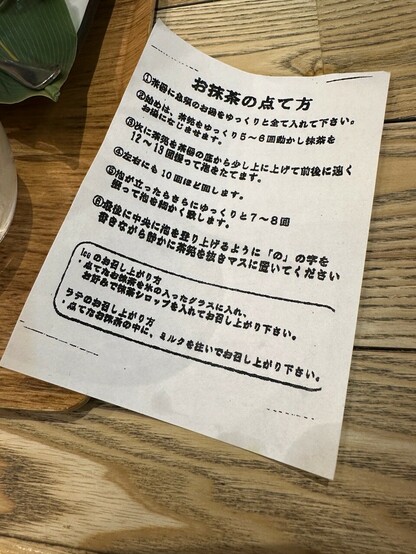 お抹茶の点て方
①茶碗に急須のお湯をゆっくりと全て入れて下さい。
②始めは、茶筅をゆっくり5~6回動かし抹茶を
お湯になじませます。
③次に茶筅を茶碗の底から少し上に上げて前後に速く
12~13回振って泡をたてます。
④左右にも10回ほど回します。
⑤泡が立ったらさらにゆっくりと7~8回
振って泡を細かく致します。
⑥最後に中央に泡を登り上げるように「の」の字を
書きながら静かに茶筅を抜きマスに置いてください
Iceのお召し上がり方
・点てたお抹茶を氷の入ったグラスに入れ、
お好みで抹茶シロップを入れてお召し上がり下さい。
ラテのお召し上がり方
・点てたお抹茶の中に、ミルクを注いでお召し上がり下さい。